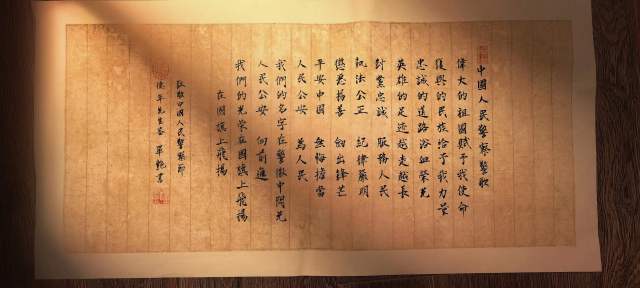 中國人民警察警歌
偉大的祖國賦予我使命
復興的民族給予我力量
忠誠的道路浴血榮光
英雄的足迹越走越長
對黨忠誠 服務人民
執法公正 紀律嚴明
懲惡揚善 劍出鋒芒
平安中國 無悔擔當
人民公安 為人民
我們的名字在警徽中閃光
人民公安 向前進
我們的光榮在國旗上飛揚
在國旗上飛揚
致敬中國人民警察節
年先生 書